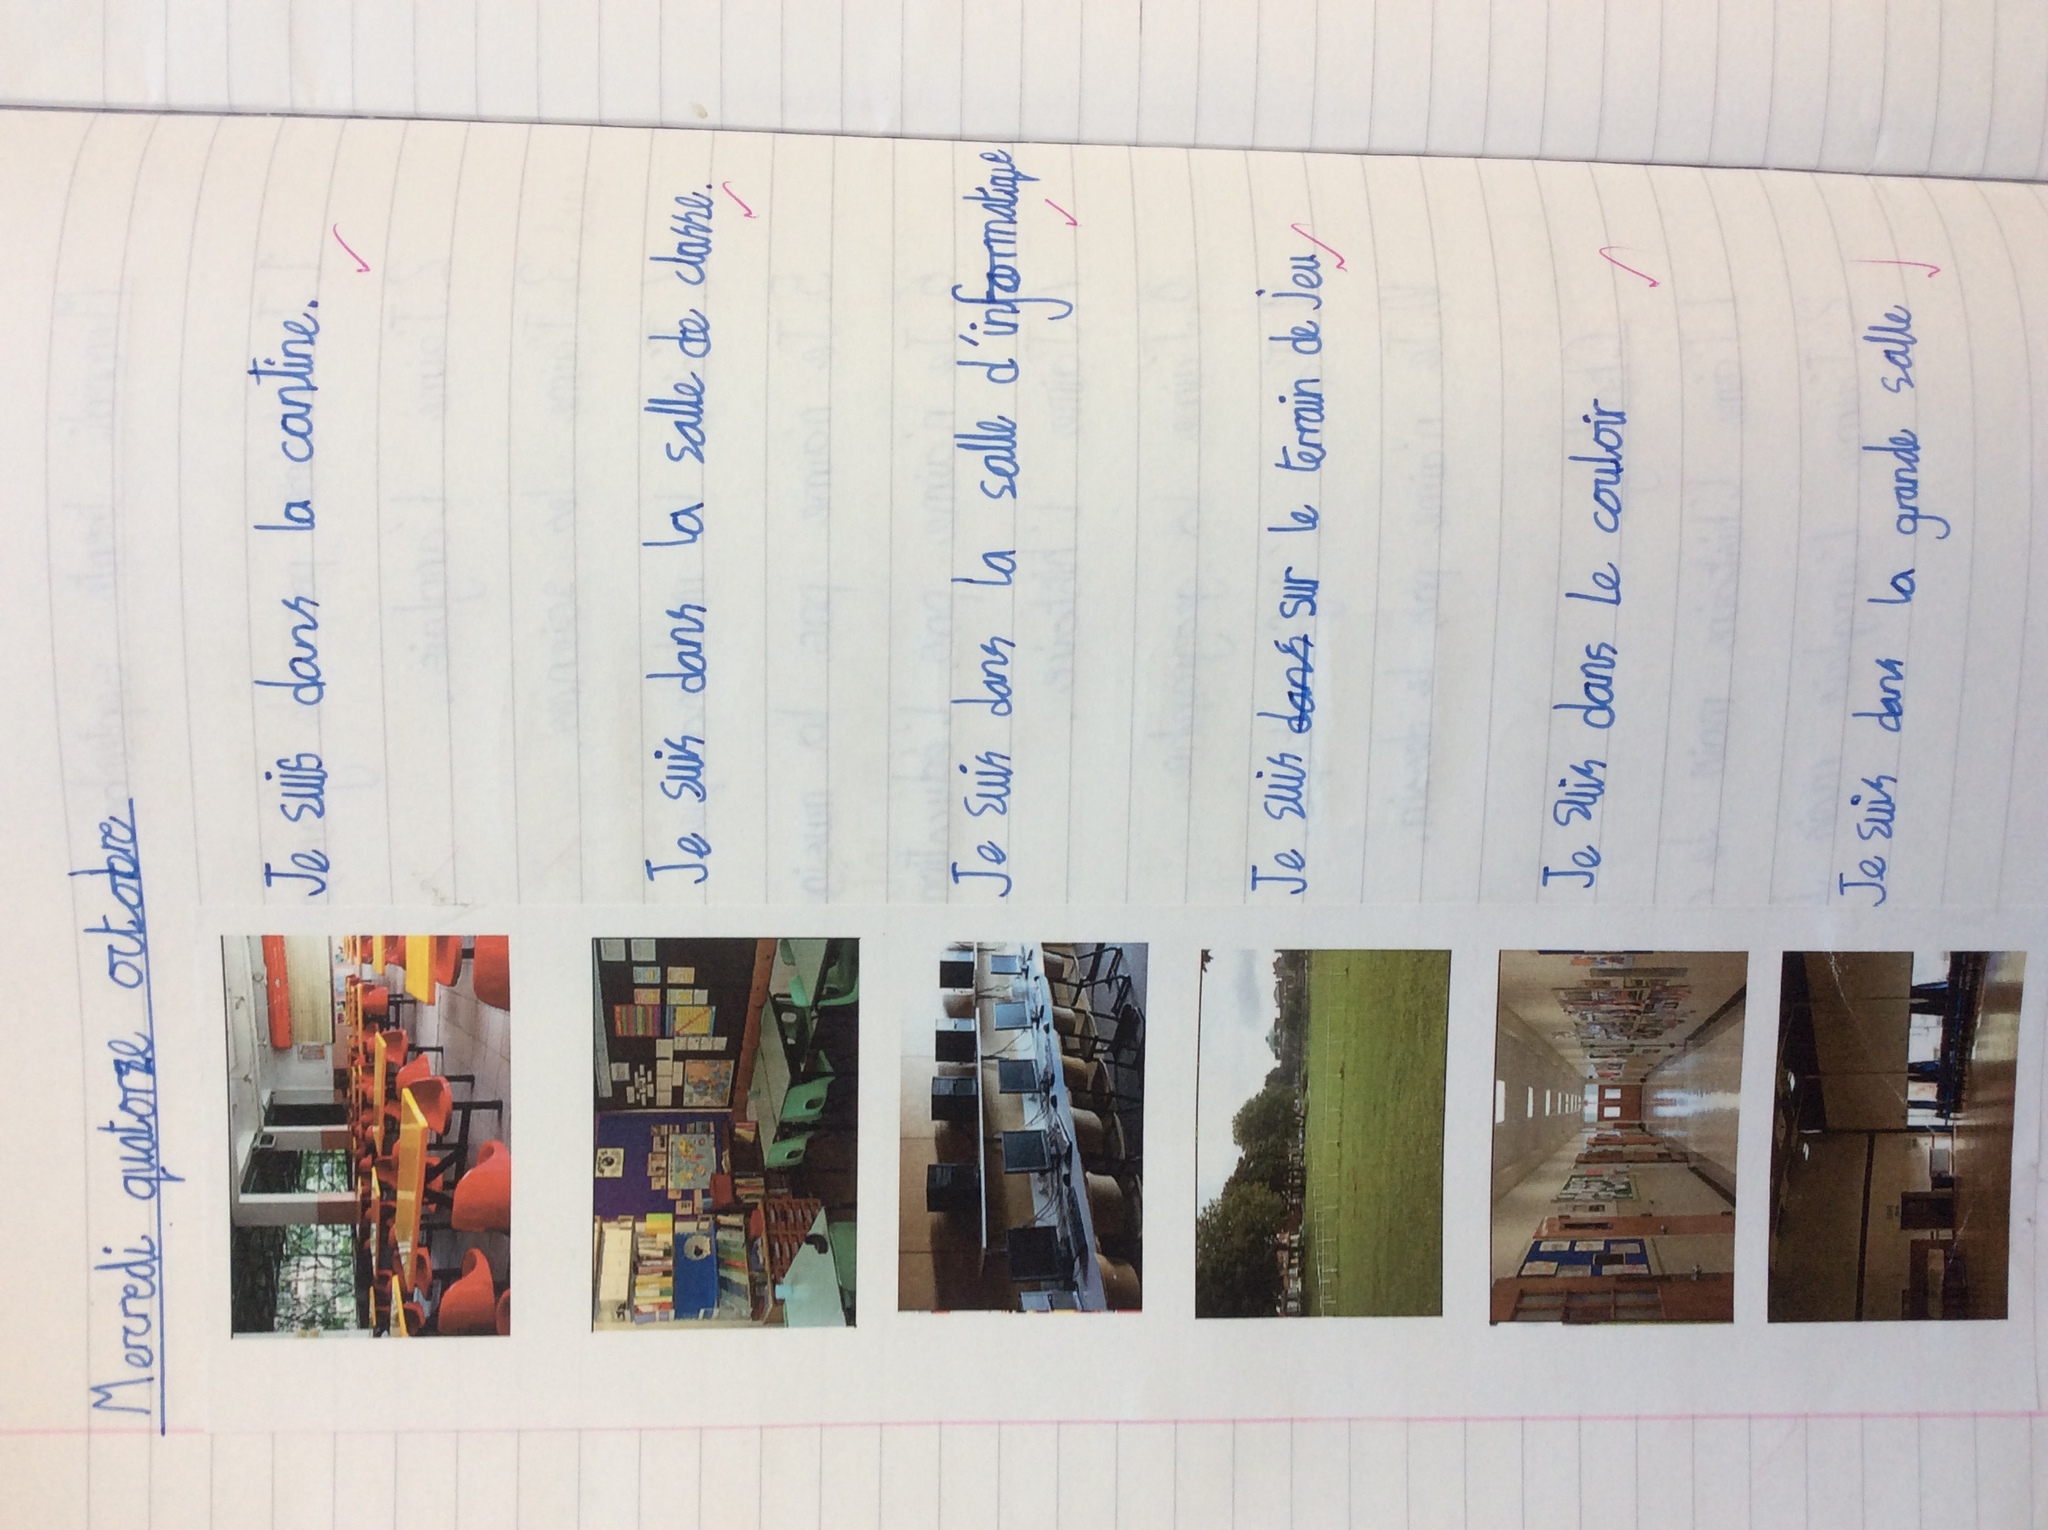 Mercredi quatorze octobre
Je suis dans la cantine.
Je suis dans la salle de classe.
Je suis dans la salle d'informatique
Je suis dans sur le terrain de jeu
Je suis dans le couloir
Je suis dans la grande salle